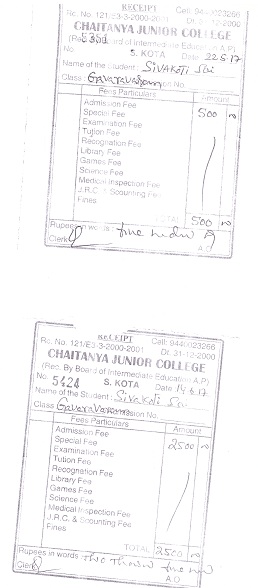 RECEIPT
Rc. No. 121/E3-3-2000-2001 Cell: 9440023266
Dt. 31-12-2000
CHAITANYA JUNIOR COLLEGE
(Rec. By Board of Intermediate Education A.P)
No. S. KOTA Date 22.5.17
Name of the Student: Sivakoti Sai
Class: Gavaravaram No.
Fees Particulars Amount
Admission Fee
Special Fee 500
Examination Fee
Tution Fee
Recognation Fee
Library Fee
Games Fee
Science Fee
Medical Inspection Fee
J.R.C. & Scounting Fee
Fines
TOTAL 500
Rupees in words five
Clerk A.O.
RECEIPT
Rc. No. 121/E3-3-2000-2001 Cell: 9440023266
Dt. 31-12-2000
CHAITANYA JUNIOR COLLEGE
(Rec. By Board of Intermediate Education A.P)
No. 5424 S. KOTA Date 14.6.17
Name of the Student: Sivakoti Sai
Class Gavaravaram Admission No.
Fees Particulars Amount
Admission Fee
Special Fee 2500
Examination Fee
Tution Fee
Recognation Fee
Library Fee
Games Fee
Science Fee
Medical Inspection Fee
J.R.C. & Scounting Fee
Fines
TOTAL 2500
Rupees in words Two five
Clerk A.O.